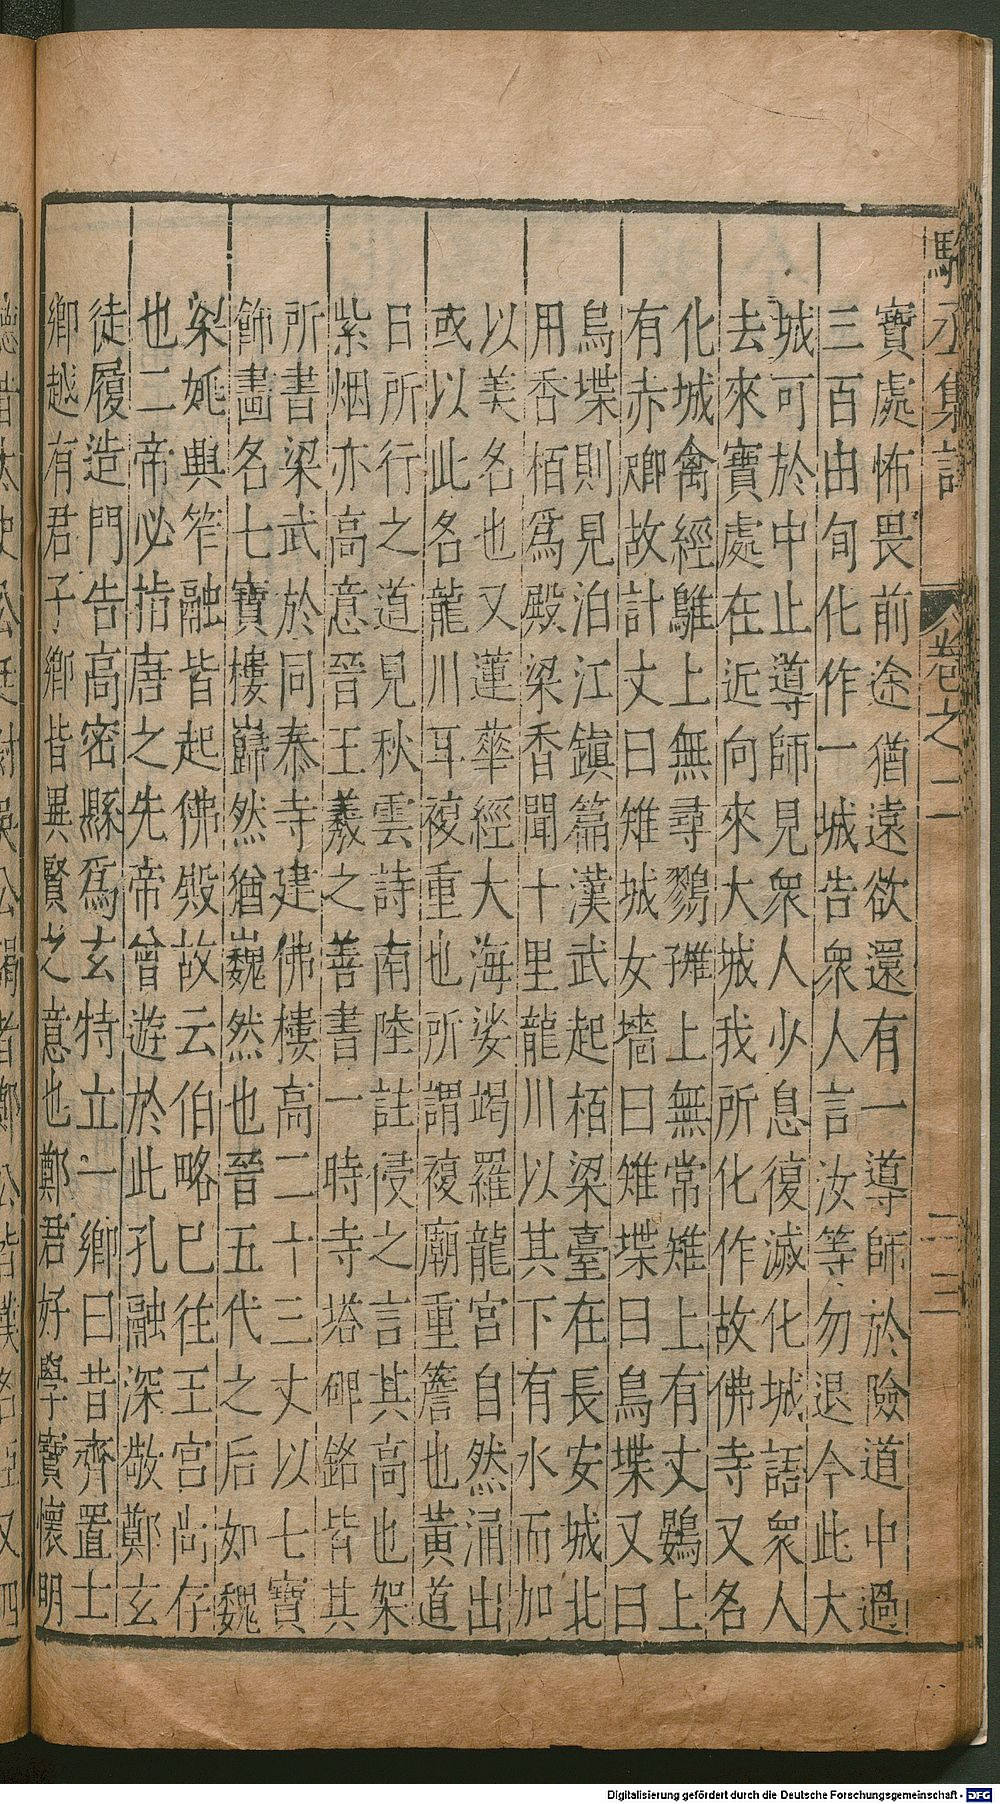 駱丞集註
卷之二
二三
寶處怖畏前途猶遠欲還有一導師於險道中過
三百由旬化作一城告衆人言汝等勿退今此大
城可於中止導師見衆人少息復滅化城語衆人
去來寶處在近向來大城我所化作故佛寺又名
化城禽經鵻上無尋鷚上無常雉上有丈鷃上
有赤故計丈曰雉城女墻曰雉堞曰烏堞又曰
烏堞則見泊江鎭篇漢武起栢梁臺在長安城北
用香栢爲殿梁香聞十里龍川以其下有水而加
以美名也又蓮華經大海娑竭羅龍宮自然涌出
或以此名龍川耳複重也所謂複廟重簷也黃道
日所行之道見秋雲詩南陸註侵之言其高也架
紫烟亦高意晉王羲之善書一時寺塔碑銘皆其
所書梁武於同泰寺建佛樓高二十三丈以七寶
飾畵名七寶樓巋然猶巍然也晉五代之后如魏
梁姚興笮融皆起佛殿故云伯略巳往王宮尚存
也二帝必指唐之先帝曾遊於此孔融深敬鄭玄
徒履造門告高密縣爲玄特立一鄉曰昔齊置士
鄉越有君子鄉皆異賢之意也鄭君好學實懷明